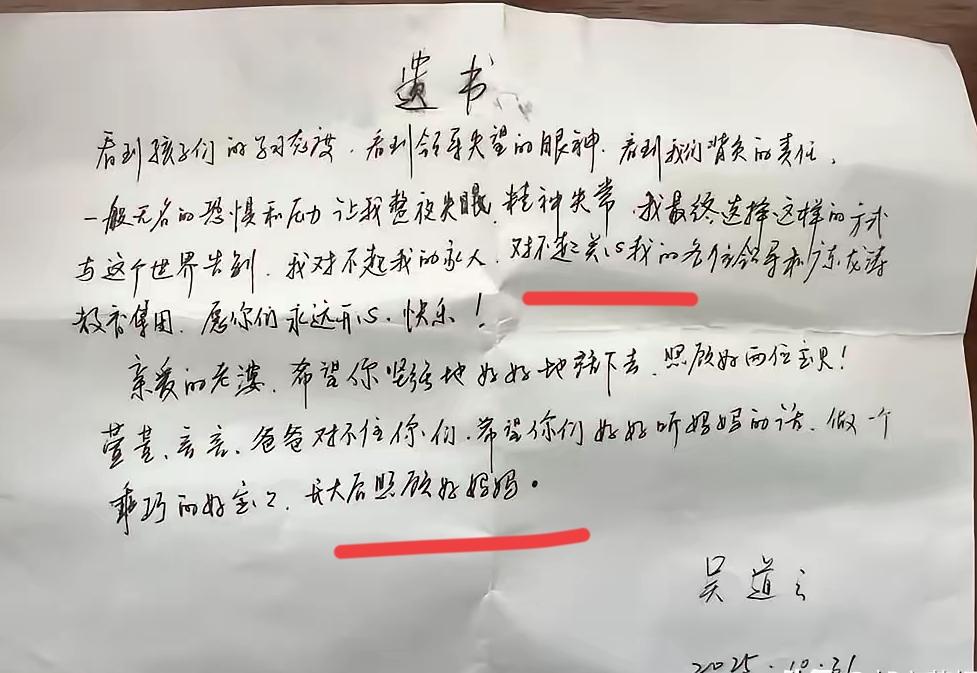 遗书
看到孩子们的学习态度、看到领导失望的眼神、看到我们背负的责任、
一般无名的恐惧和压力让我整夜失眠、精神失常、我最终选择这样的方式
与这个世界告别、我对不起我的家人、对不起关心我的各位领导和龙涛
教育集团、愿你们永远开心、快乐！
亲爱的老婆、希望你坚强地好好地活下去、照顾好两位宝贝！
萱萱、言言、爸爸对不住你们、希望你们好好听妈妈的话、做一个
乖巧的好宝宝、长大后照顾好妈妈。
吴道
2025.10.31